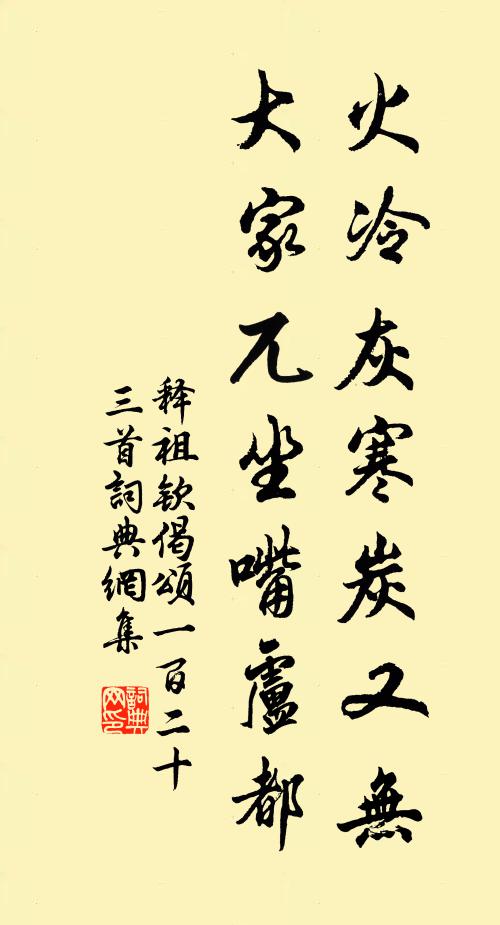 火冷灰寒炭又無
大家兀坐嘴盧都
释祖欽偈頌一百二十
三首詞典網集
詞典
网印